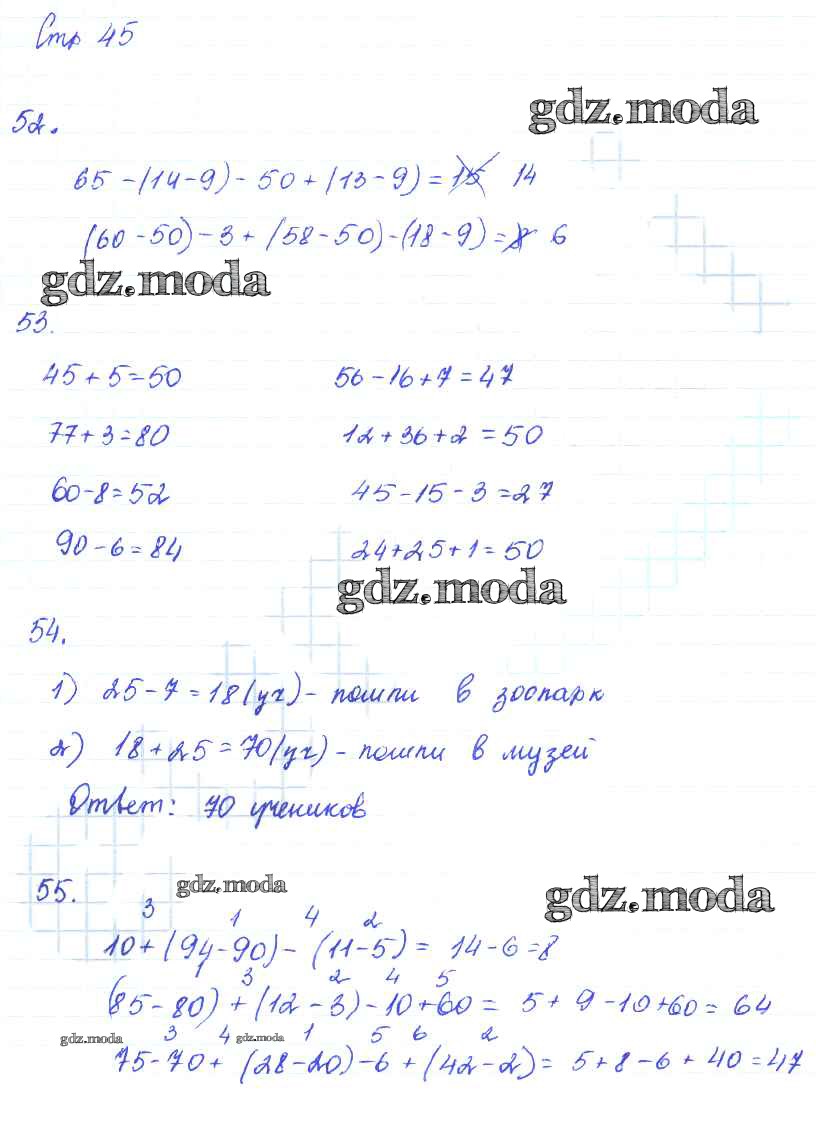 Стр 45
gdz.moda
52.
65 - (14 - 9) - 50 + (13 - 9) = 15 14
(60 - 50) - 3 + (58 - 50) - (18 - 9) = 8 6
gdz.moda
53.
45 + 5 = 50 56 - 16 + 7 = 47
77 + 3 = 80 12 + 36 + 2 = 50
60 - 8 = 52 45 - 15 - 3 = 27
90 - 6 = 84 24 + 25 + 1 = 50
gdz.moda
54.
1) 25 - 7 = 18 (уч) - пошли в зоопарк
2) 18 + 25 = 70 (уч) - пошли в музей
Ответ: 70 учеников
55. gdz.moda gdz.moda
3 1 4 2
10 + (94 - 90) - (11 - 5) = 14 - 6 = 8
1 3 2 4 5
(85 - 80) + (12 - 3) - 10 + 60 = 5 + 9 - 10 + 60 = 64
gdz.moda 3 4 gdz.moda 1 5 6 2
75 - 70 + (28 - 20) - 6 + (42 - 2) = 5 + 8 - 6 + 40 = 47